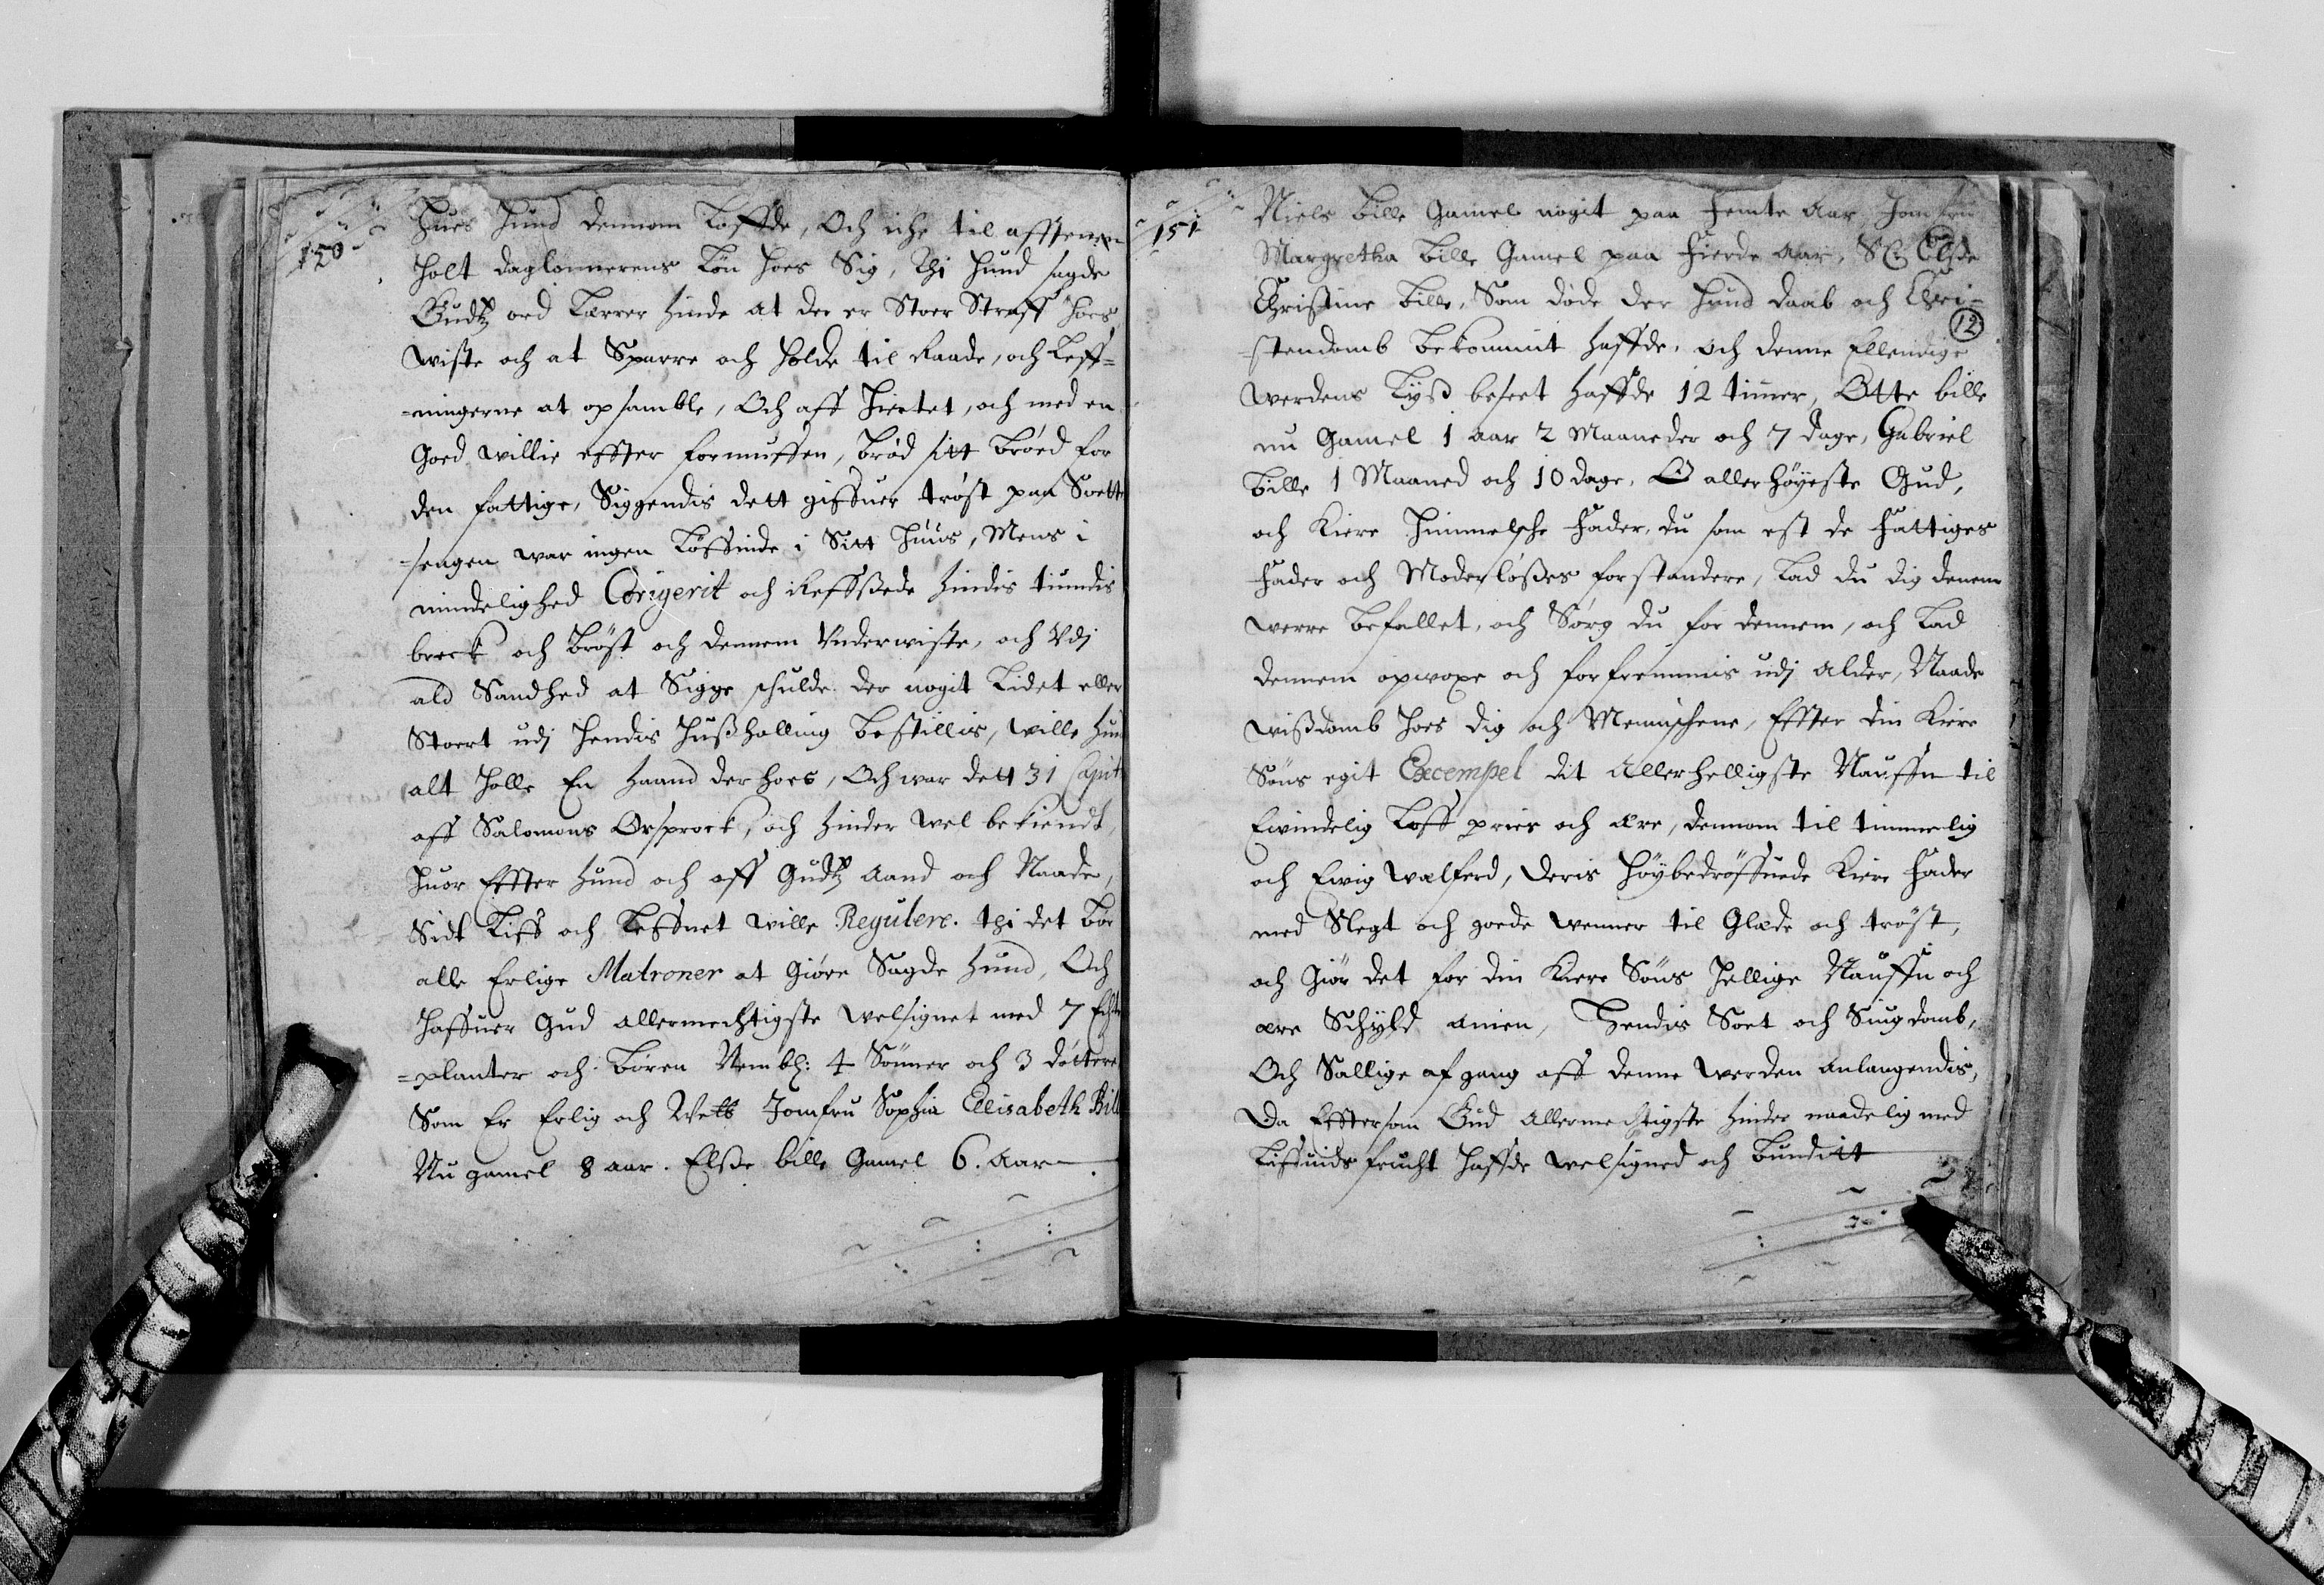 150
Hues Hund dennom Loffde, Och iche til afftenen
Holt daglonnerens Løn hoes Sig, Thi Hund sagde
Gudtz ord Lærrer hinde at der er Stoer Straff hoes
wiste och at Sparre och holde til Raade, och Leff=
=ningerne at opsamble, Och aff Hiertet, och med en
Goed willie effter formuffen, brød sitt Brøed for
den fattige, Siggendis dett giffuer trøst paa Soette
=sengen war ingen Løffinde i Sitt Huus, Mens i
mindelighed Corigerit och Reffßede hindis tiundis
breck och Brøst och dennem Underwiste, och Udj
ald Sandhed at Sigge schulde der nogit Lidet eller
Stoert udj Hendis Hußholling bestillis, wille hun
alt holle En haand der hoes, Och war dett 31 Capit
aff Salomons Orsprock, och hinder wel bekiendt,
Huor Effter hund och aff Gudtz aand och Naade,
Sidt Liff och Leffnet wille Regulere. thi det Bør
alle Erlige Matroner at Giøre Sagde hund, Och
Haffuer Gud allermechtigste welsignet med 7 Echte
=planter och Børen Nembl: 4 Sønner och 3 døttere
Som Er Erlig och Welb Jomfru Sophia Ellisabeth Bill
Nu gamel 8 aar. Elße bille Gamel 6. Aar
151
Niels Bille Gamel nogit paa Femte Aar Jomfru
Margretha Bille Gamel paa Fierde Aar, Sl: Elsse
Christine Bille, Som døde der Hund daab och Chri=
12
=stendomb bekommit haffde, och denne Ellendige
werdens Lyß beseet haffde 12 timer, Otte bille
nu Gamel 1 aar 2 Maaneder och 7 dage, Gabriel
Bille 1 Maaned och 10 dage, O allerhøyeste Gud,
och Kiere Himmelsche Fader, du som est de Fattiges
Fader och Moderløßes forstandere, Lad du dig dennem
werre befallet, och Sørg du for dennem, och Lad
dennem opwoxe och forfremmis udj alder, Naade
wißdomb hoes dig och Menischene, Effter din Kiere
Søns egit Excempel dit Allerhelligste Nauffn til
Ewindelig Loff pries och ære, dennom til timmelig
och Ewig wælferd, deris Høybedrøffuede Kiere Fader
med Slegt och goede wenner til Glæde och trøst,
och Giør det for din Kiere Søns Hellige Nauffn och
ære Schyld amen, Hendis Soet och Siugdomb,
Och Sallige afgang aff denne werden anlangendis,
Da Efftersom Gud Allermechtigste hinder naadelig med
Liffuids frucht haffde welsigned och bunditt